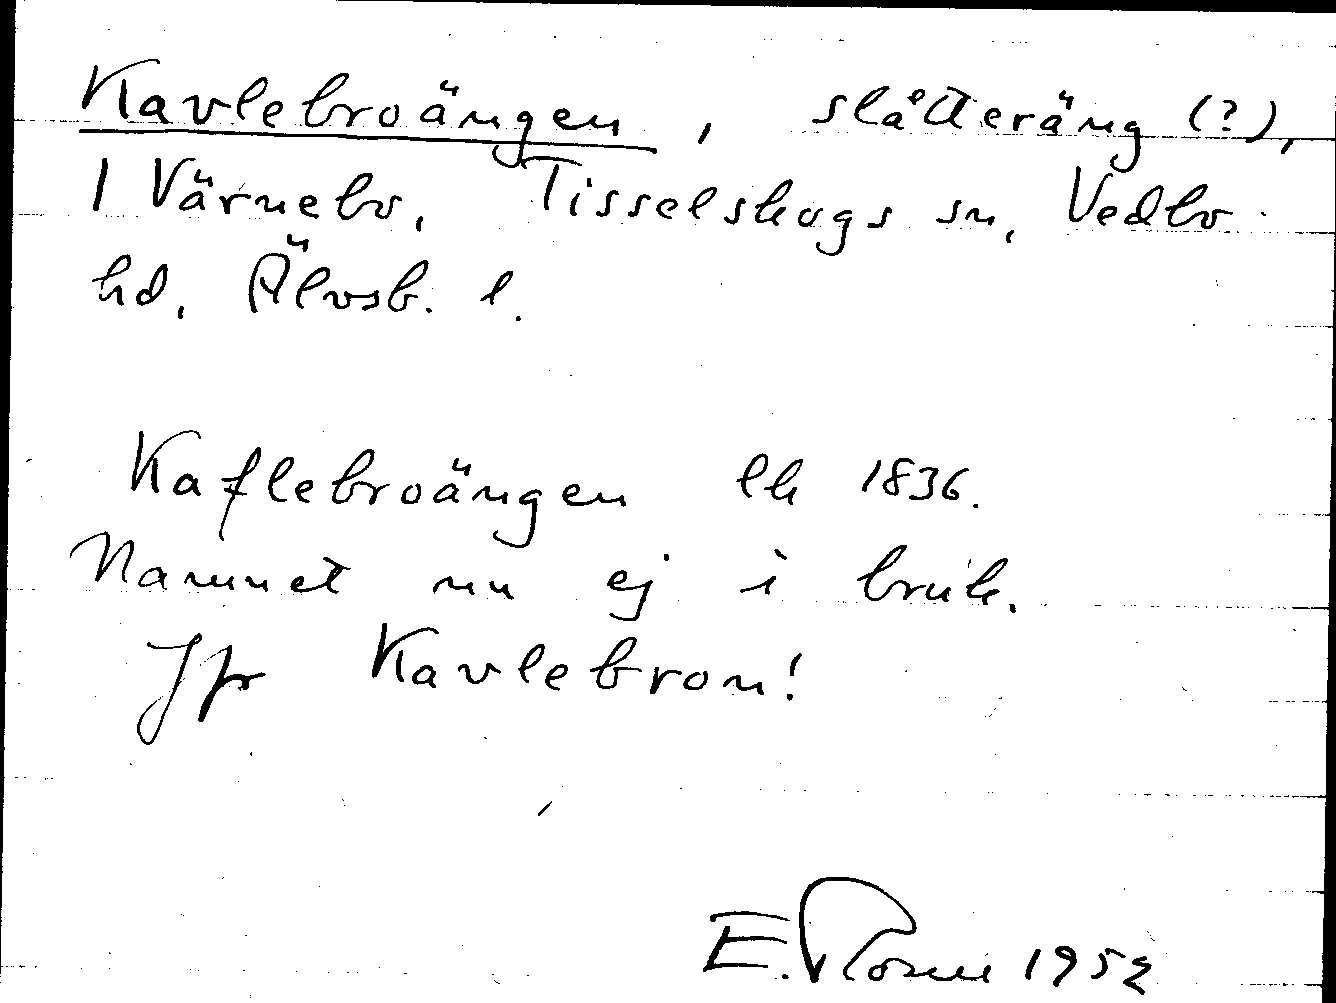 Kavlebroängen, slåtteräng (?),
1 Värnebo, Tisselskogs sn, Vedbo
hd, Älvsb. l.
Kaflebroängen lh 1836.
Namnet nu ej i bruk.
Jfr Kavlebron!
E. 1952